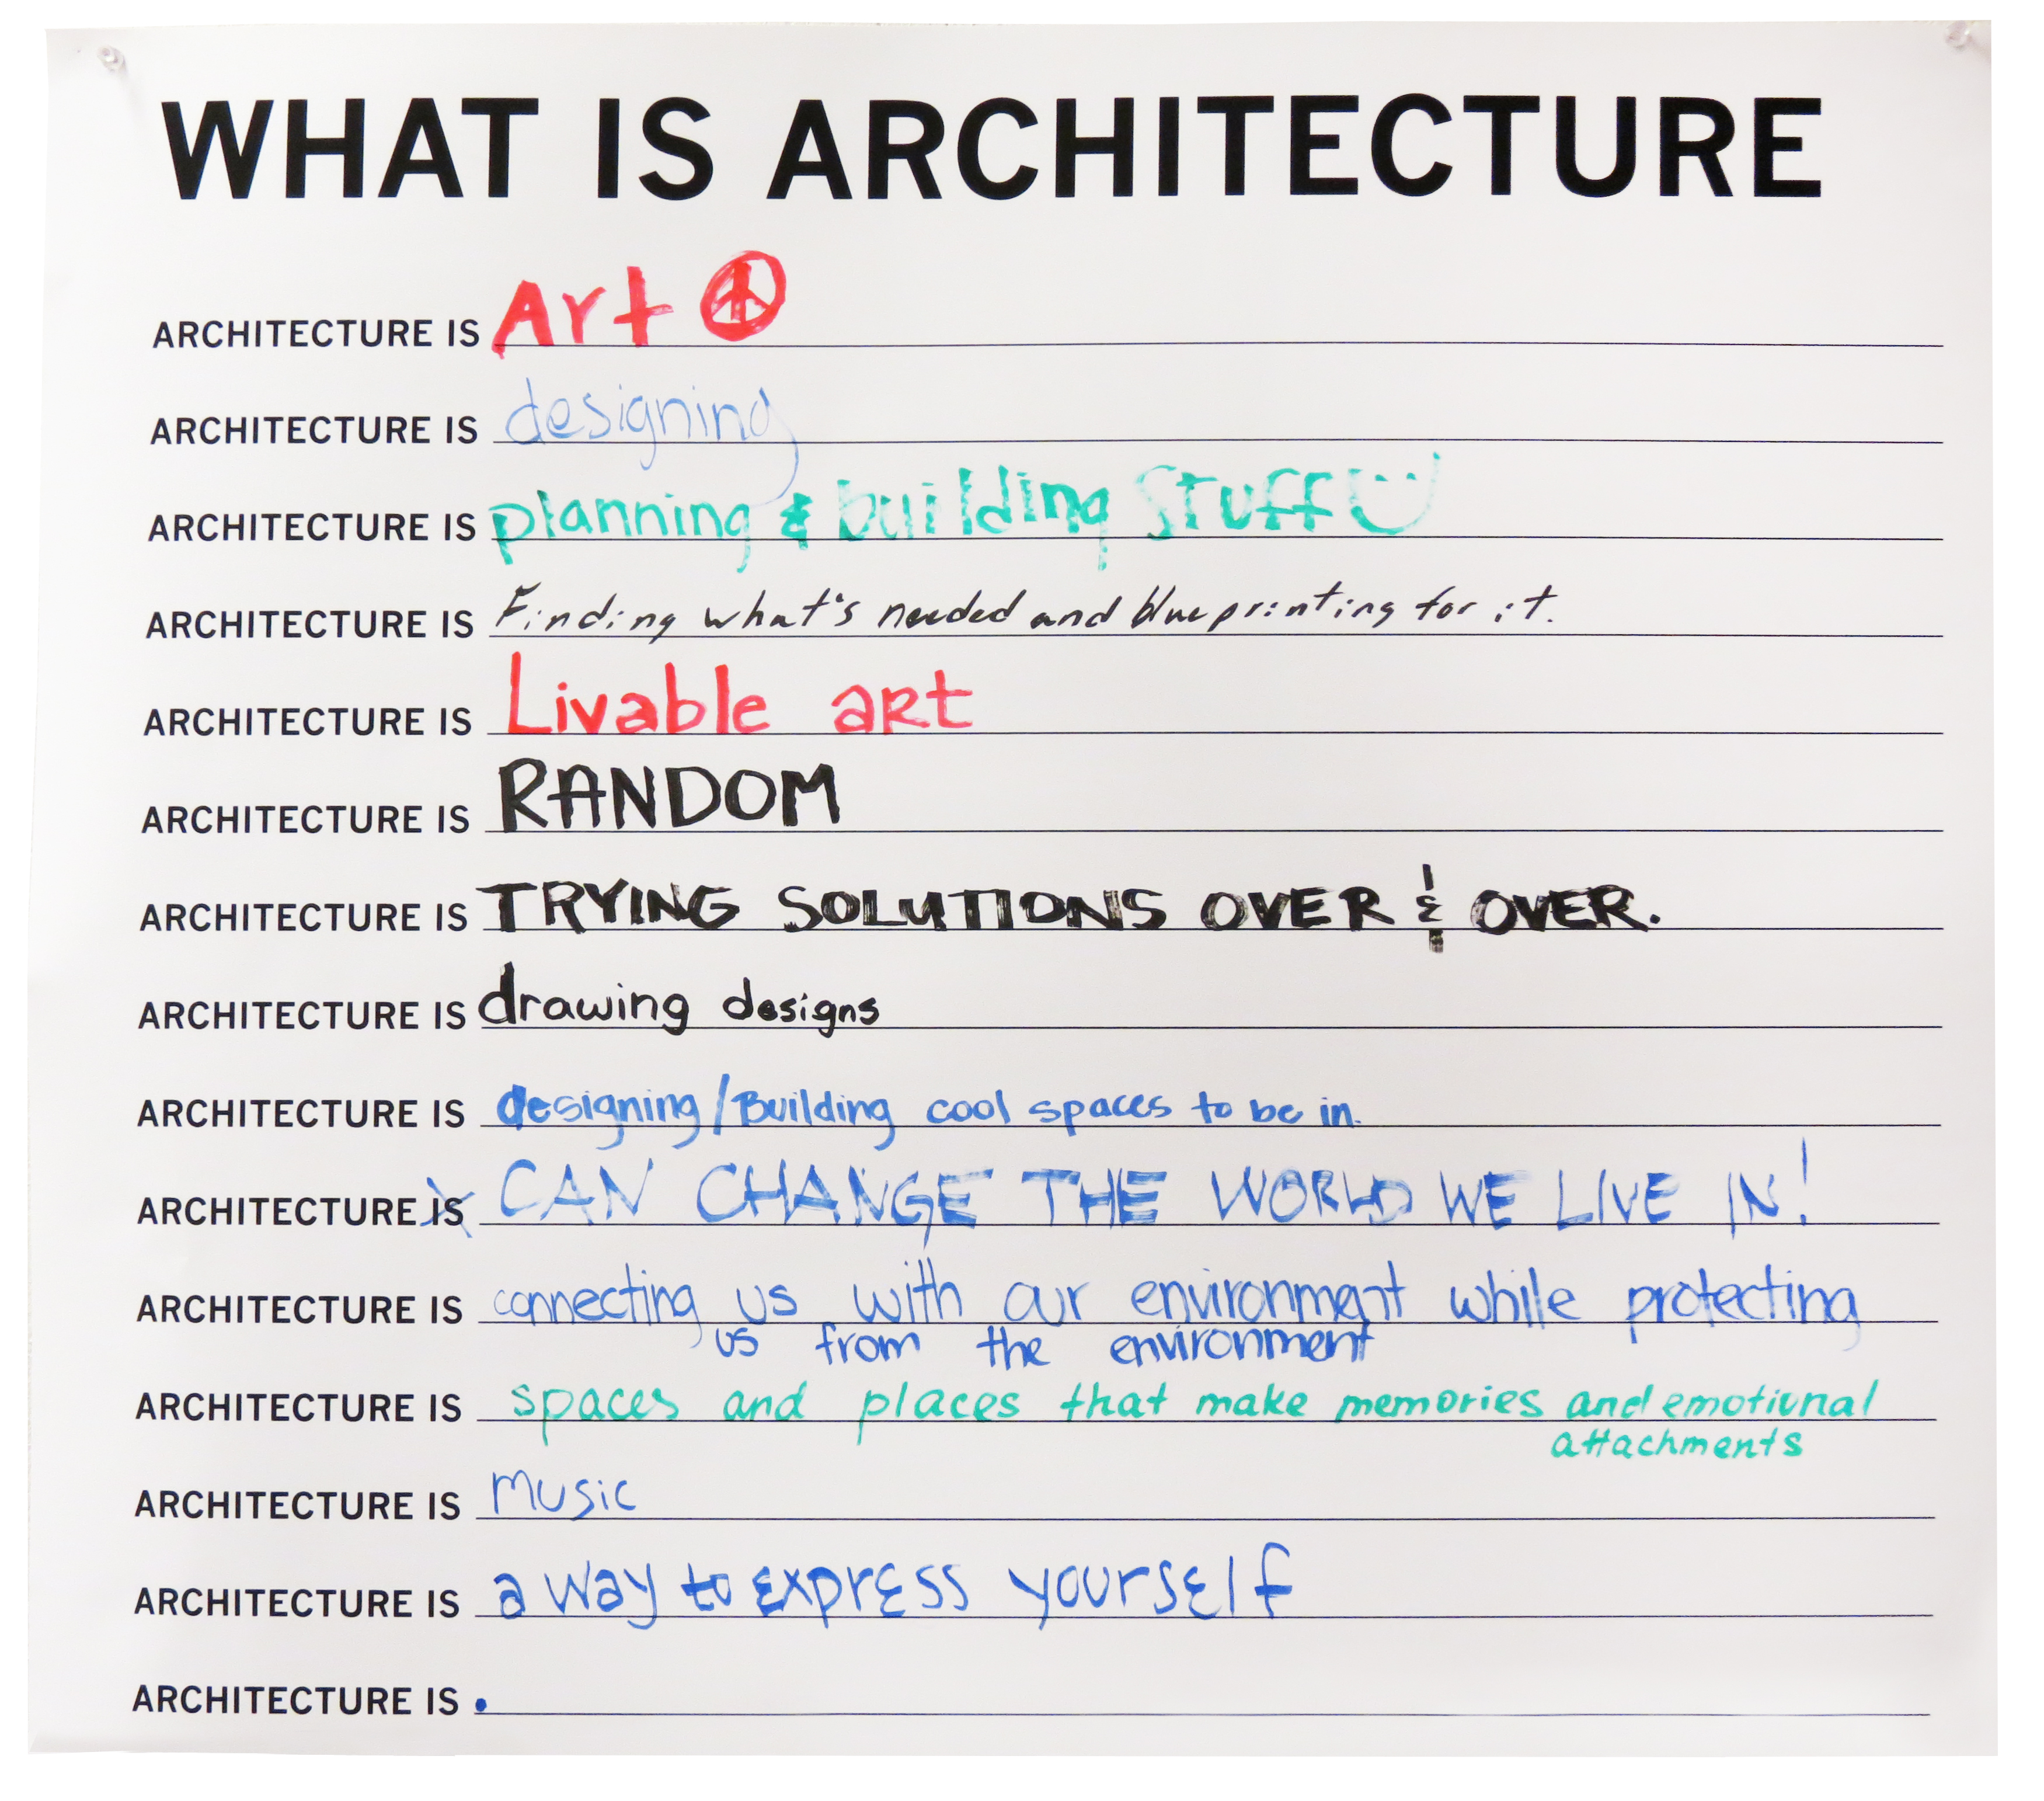 WHAT IS ARCHITECTURE
ARCHITECTURE IS Art
ARCHITECTURE IS designing
ARCHITECTURE IS planning & building Stuff
ARCHITECTURE IS Finding what's needed and blueprinting for it.
ARCHITECTURE IS Livable art
ARCHITECTURE IS RANDOM
ARCHITECTURE IS TRYING SOLUTIONS OVER & OVER.
ARCHITECTURE IS drawing designs
ARCHITECTURE IS designing/Building cool spaces to be in.
ARCHITECTURE IS CAN CHANGE THE WORLD WE LIVE IN!
ARCHITECTURE IS connecting us with our environment while protecting
us from the environment
ARCHITECTURE IS spaces and places that make memories and emotional
attachments
ARCHITECTURE IS music
ARCHITECTURE IS a way to express yourself
ARCHITECTURE IS .